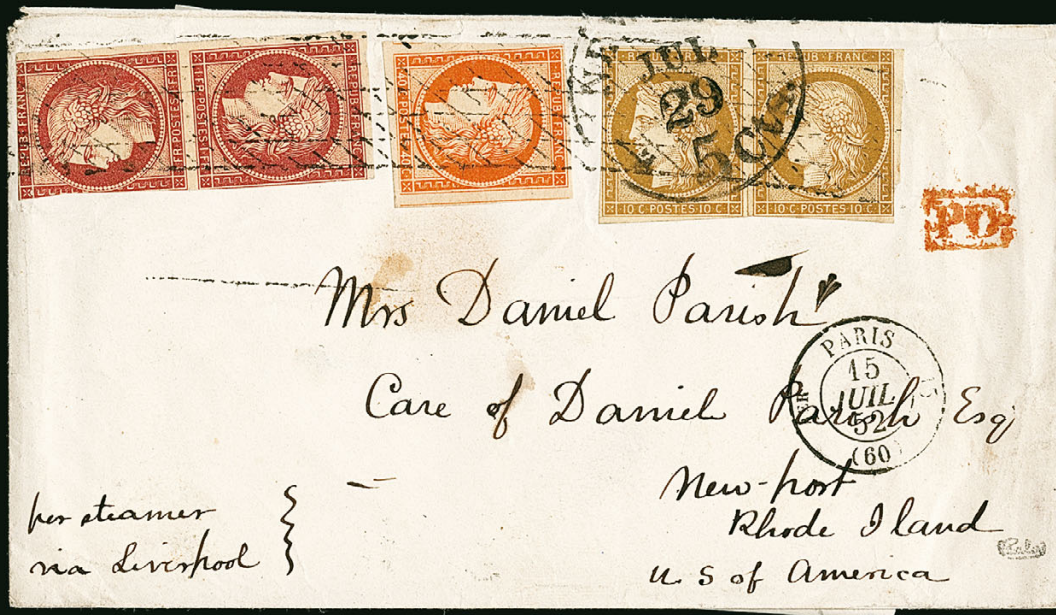 REPUB FRANC
1 FR POSTES 1 FR
1 FR POSTES 1 FR
REPUB FRANC
40 C POSTES 40 C
REPUB FRANC
REPUB FRANC
10 C · POSTES 10 C
REPUB FRANC
10 C · POSTES 10 C
JUL
29
5 Cts.
PD.
Mrs Daniel Parish
Care of Daniel Parish Esq
PARIS
15
JUIL
52
(60)
New-port
Rhode Iland
U S of America
per steamer
via Liverpool